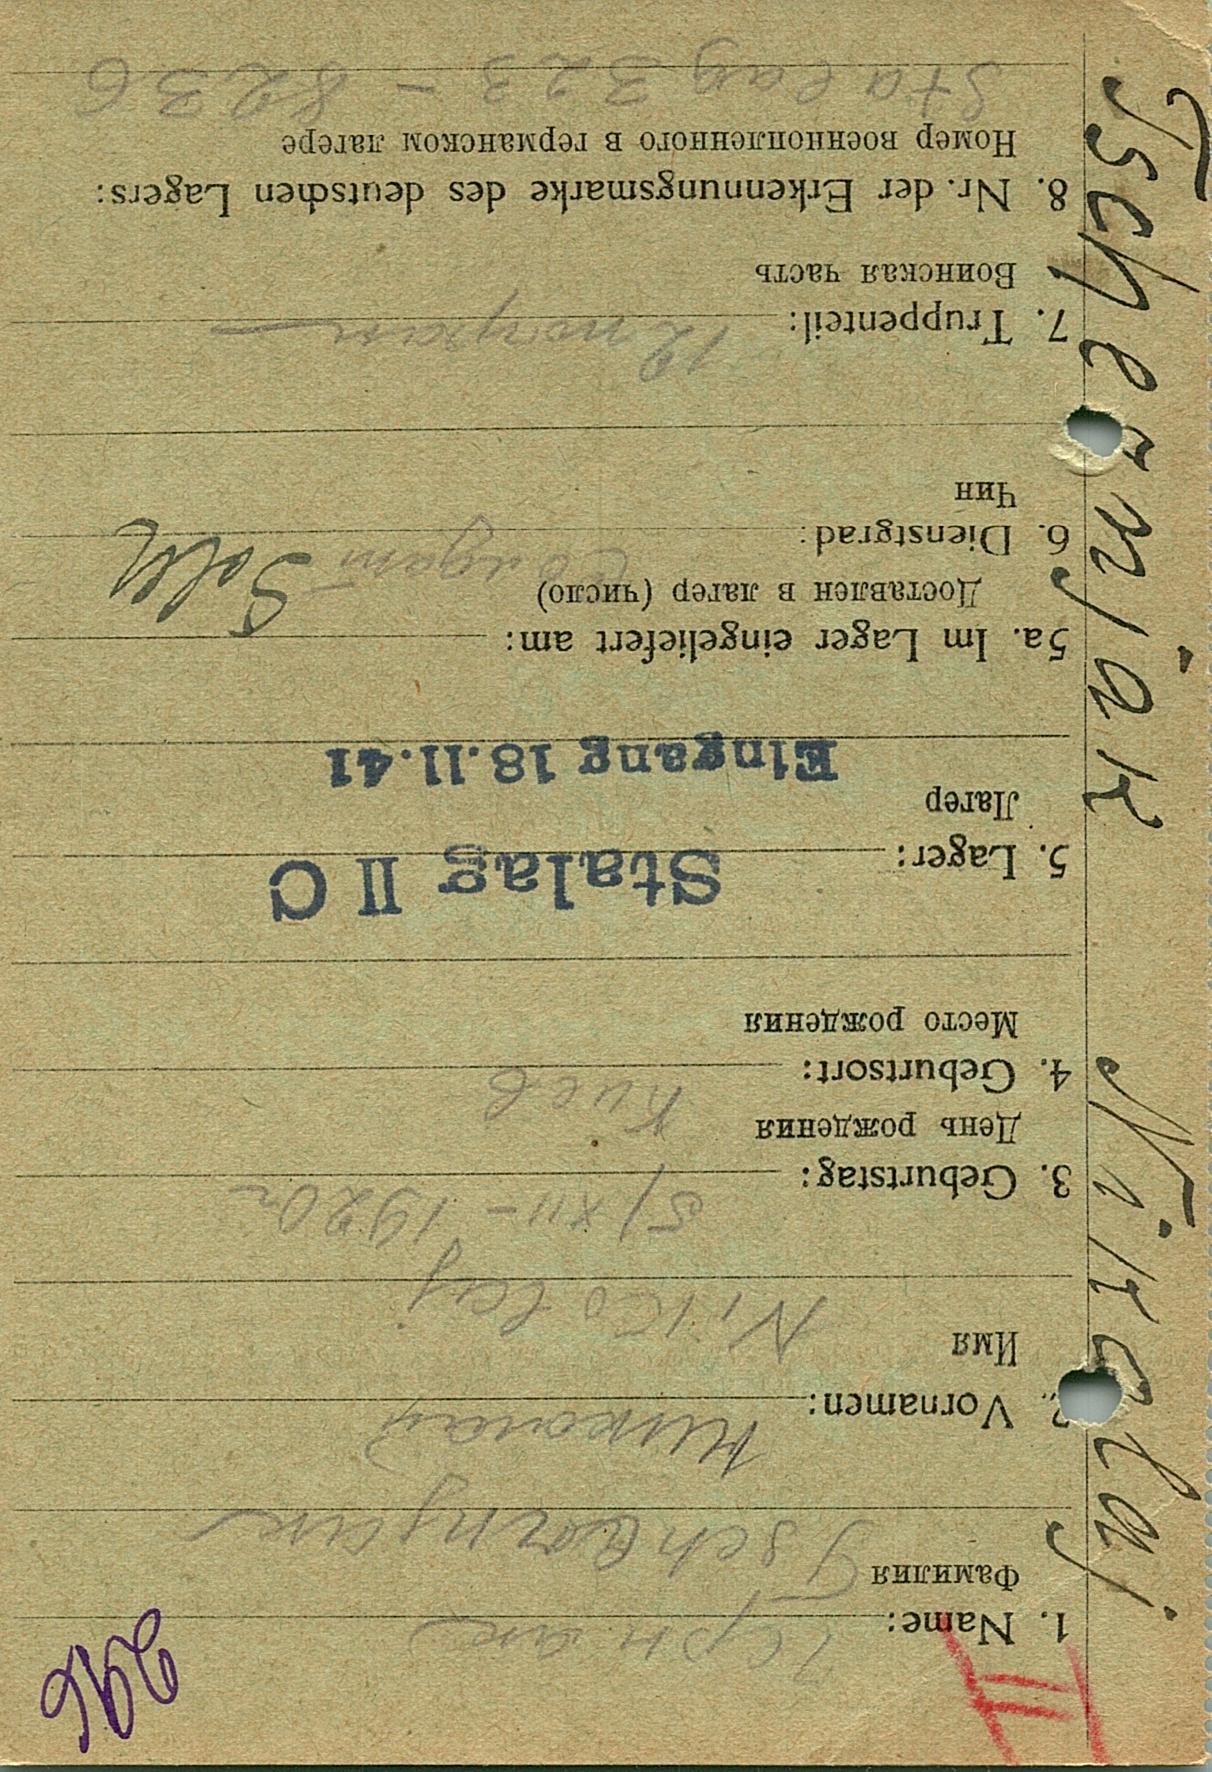 Tschernjak Nikolaj
II
1. Name: Черняк
Фамилия
Tschernjak
2. Vornamen: Николай
Имя
Nikolaj
3. Geburtstag: 5/XII – 1920г
День рождения
4. Geburtsort: Киев
Место рождения
5. Lager: Stalag II C
Лагер
Eingang 18.11.41
5a. Im Lager eingeliefert am:
Доставлен в лагер (число)
6. Dienstgrad: Солдат Sold
Чин
7. Truppenteil: 12
Воинская часть
8. Nr. der Erkennungsmarke des deutschen Lagers:
Номер военнопленного в германском лагере
Stalag 323 – 8236